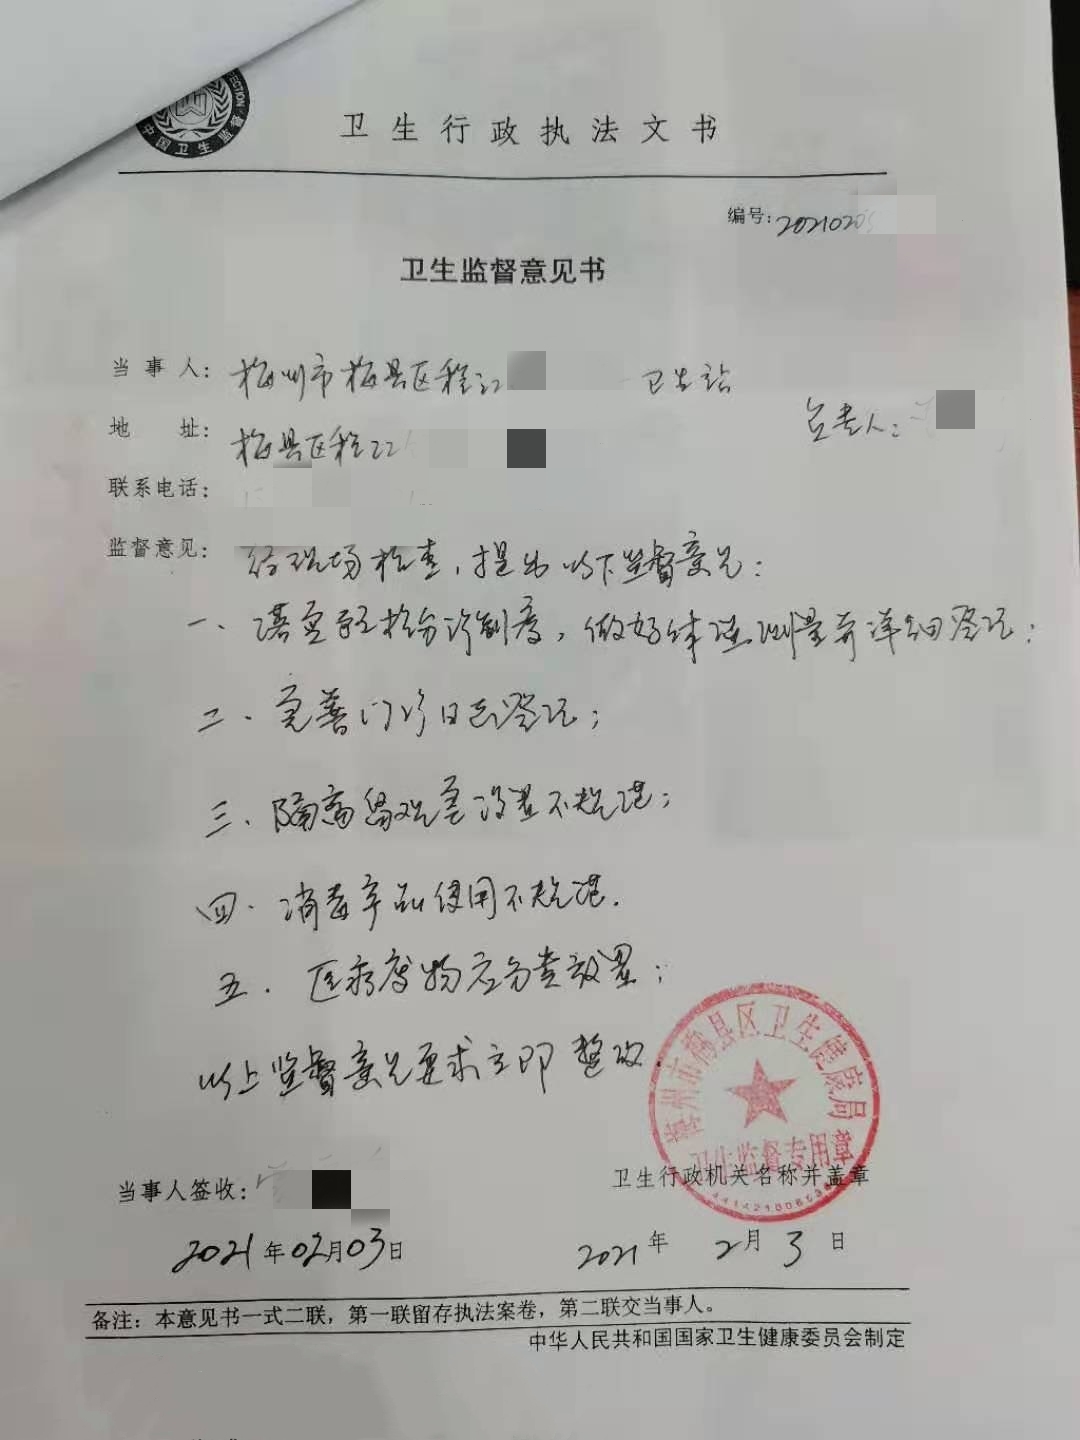 中国卫生监督
卫生行政执法文书
编号：2021020
卫生监督意见书
当事人：梅州市梅县区程江 卫生站
负责人：
地址：梅县区程江
联系电话：
监督意见：经现场检查，提出以下监督意见：
一、落实预检分诊制度，做好体温测量并详细登记；
二、完善门诊日志登记；
三、隔离留观室设置不规范；
四、消毒产品使用不规范．
五．医疗废物应分类放置；
以上监督意见要求立即整改
梅州市梅县区卫生健康局
卫生监督专用章
当事人签收：
卫生行政机关名称并盖章
2021年02月03日
2021年2月3日
备注：本意见书一式二联，第一联留存执法案卷，第二联交当事人。
中华人民共和国国家卫生健康委员会制定